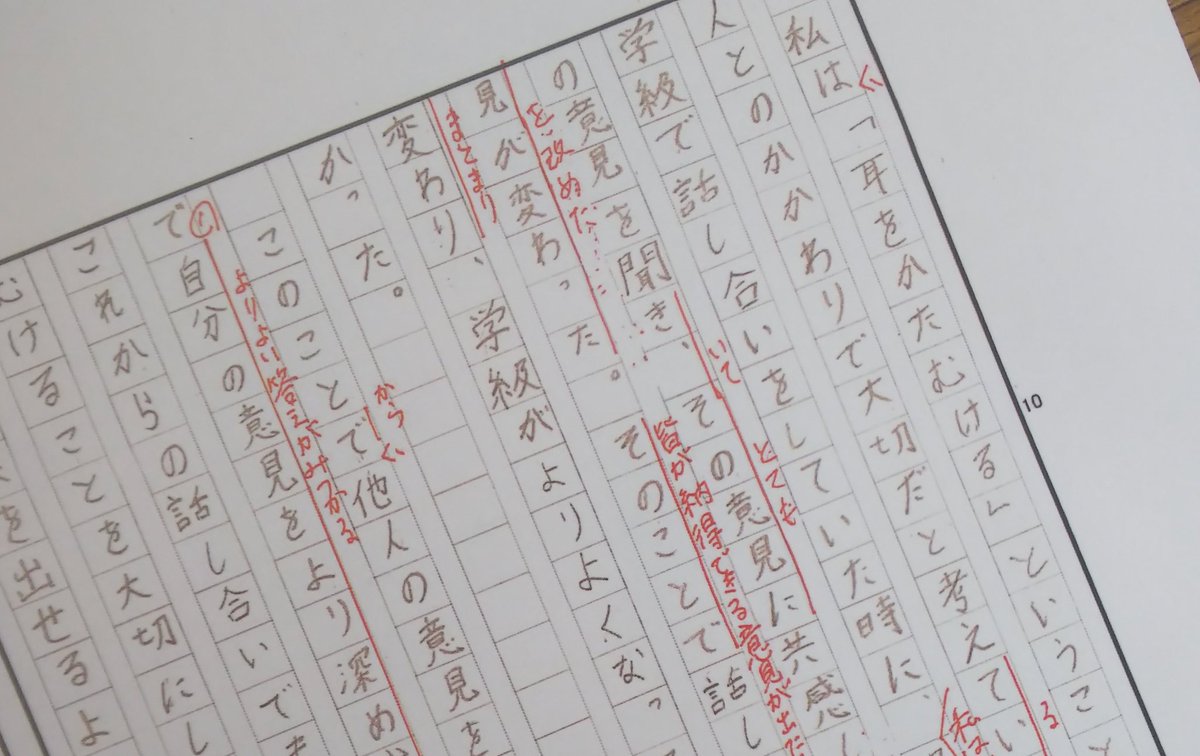 私は「耳をかたむける」というこ
人とのかかわりで大切だと考えてい
る
学級で話し合いをしていた時に、
私は
とても
の意見を聞き、その意見に共感
いて
見が変わった。そのことで話し
を改めた……
皆が納得できる意見が出た
変わり、学級がよりよくなっ
まとまり
かった。
このことで他人の意見を
から
で自分の意見をより深め
よりよい答えがみつかる
これからの話し合いでき
むけることを大切にし
を出せるよ